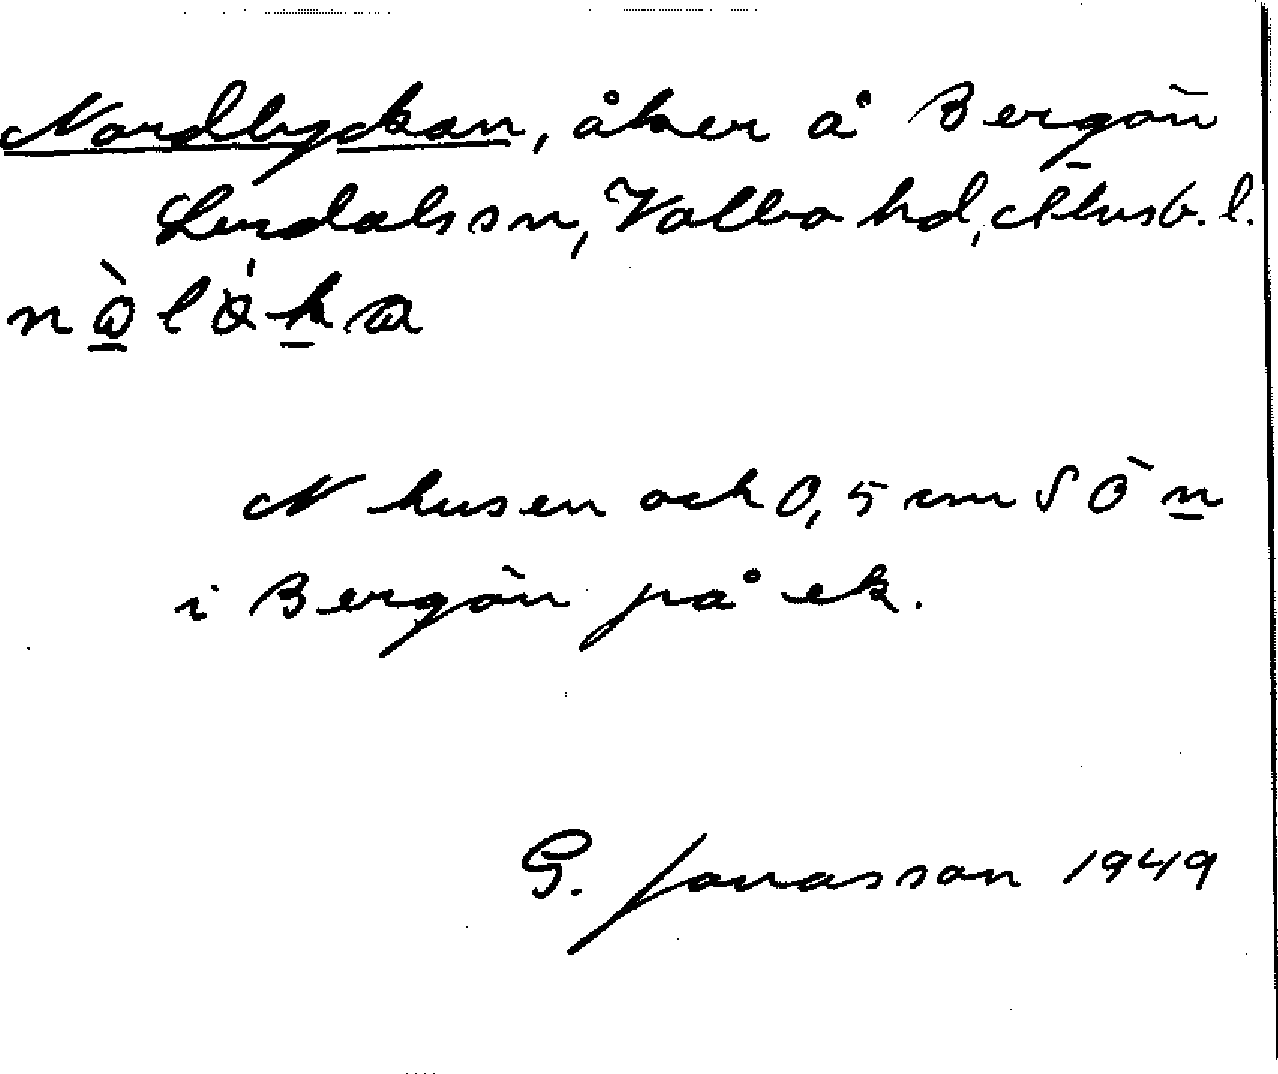 Nordlyckan, åker å Bergön
Lerdals sn, Valbo hd, Älvsb. l.
N husen och 0,5 cm S Ö n
i Bergön på ek.
G. Jonasson 1949